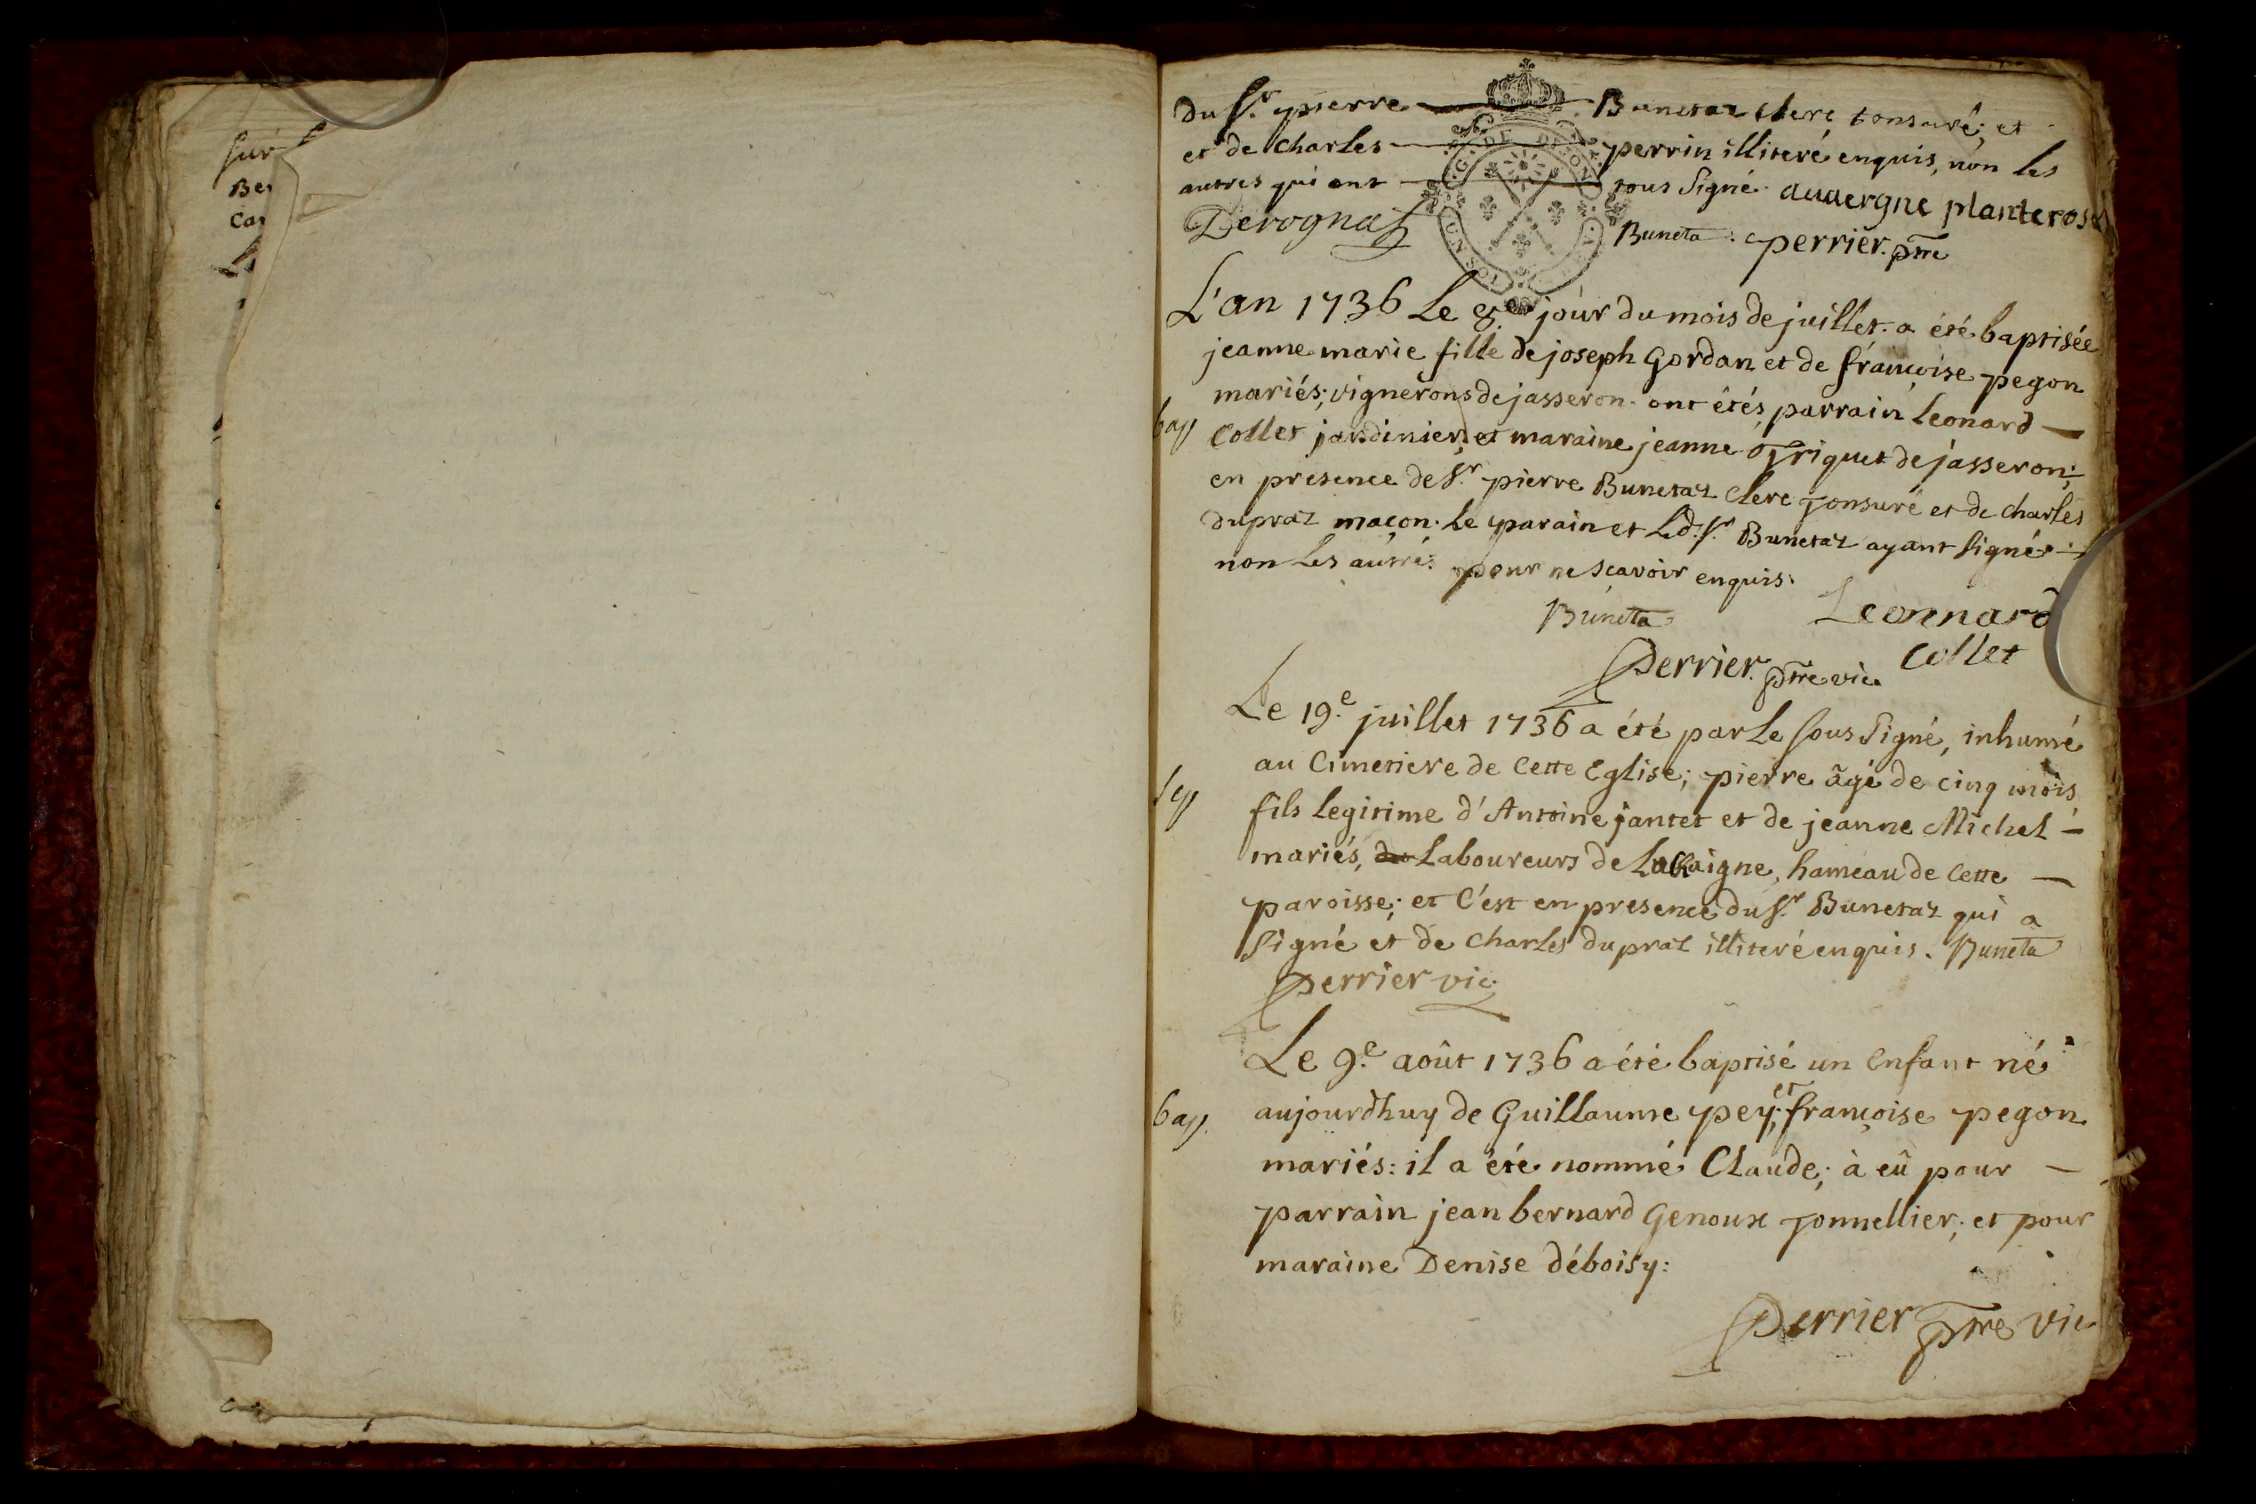 sur
Be
Ca
du Sr. pierre Bunetaz clerc tonsuré; et
et de Charles perrin illiteré enquis, non les
autres qui ont tous signé. auuergne planterose
Derognat Buneta. perrier. ptre
G. DE DIJON
UN SOL
L'an 1736 Le 8e jour du mois de juillet. a été baptisée
jeanne marie fille de joseph Gordan et de françoise pegon
mariés; vignerons de jasseron. ont étés parrain Leonard
bap
Collet jardinier, et maraine jeanne triquet de jasseron;
en presence de Sr. pierre Bunetaz clerc Tonsuré et de charles
dupraz maçon. Le parain et Led. Sr. Bunetaz ayant signé
non Les autres pour ne scavoir enquis.
Buneta Leonnard
Collet
perrier. ptre vic.
Le 19.e juillet 1736 a été par Le sous signé, inhumé
au Cimetiere de Cette Eglise; pierre âgé de cinq mois,
sep
fils legitime d'Antoine jantet et de jeanne Michel
mariés, Laboureurs de hameau de Cette
paroisse; et C'est en presence du Sr. Bunetaz qui a
signé et de Charles dupraz illiteré enquis. Buneta
perrier vic.
Le 9.e août 1736 a été baptisé un Enfant né
bap.
aujourdhuy de Guillaume pey; et françoise pegon
mariés: il a été nommé Claude; à eû pour
parrain jean bernard Genoux Tonnellier; et pour
maraine Denise déboisy:
perrier ptre vic